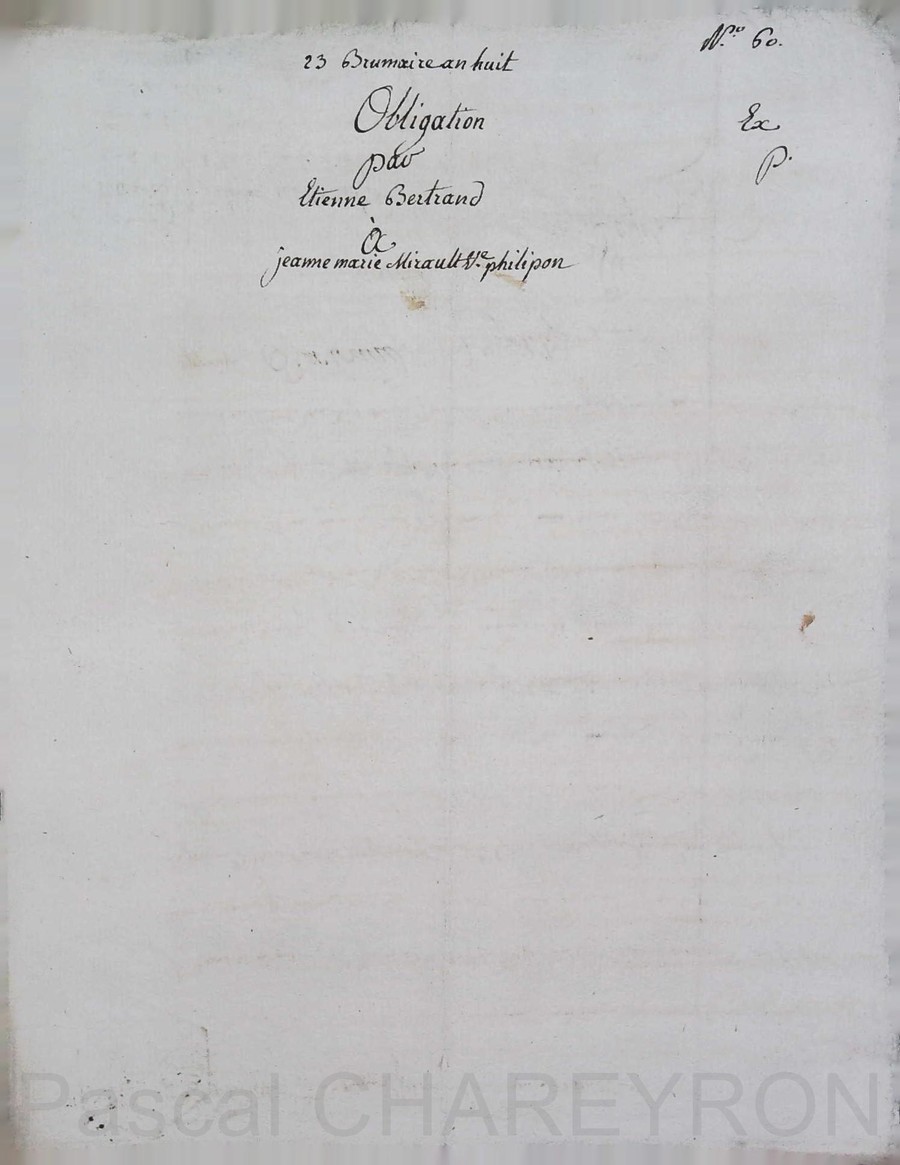 N.ro 60.
23 Brumaire an huit
Obligation
Ex
par
P.
Etienne Bertrand
à
jeanne marie Mirault Ve. philipon
Pascal CHAREYRON